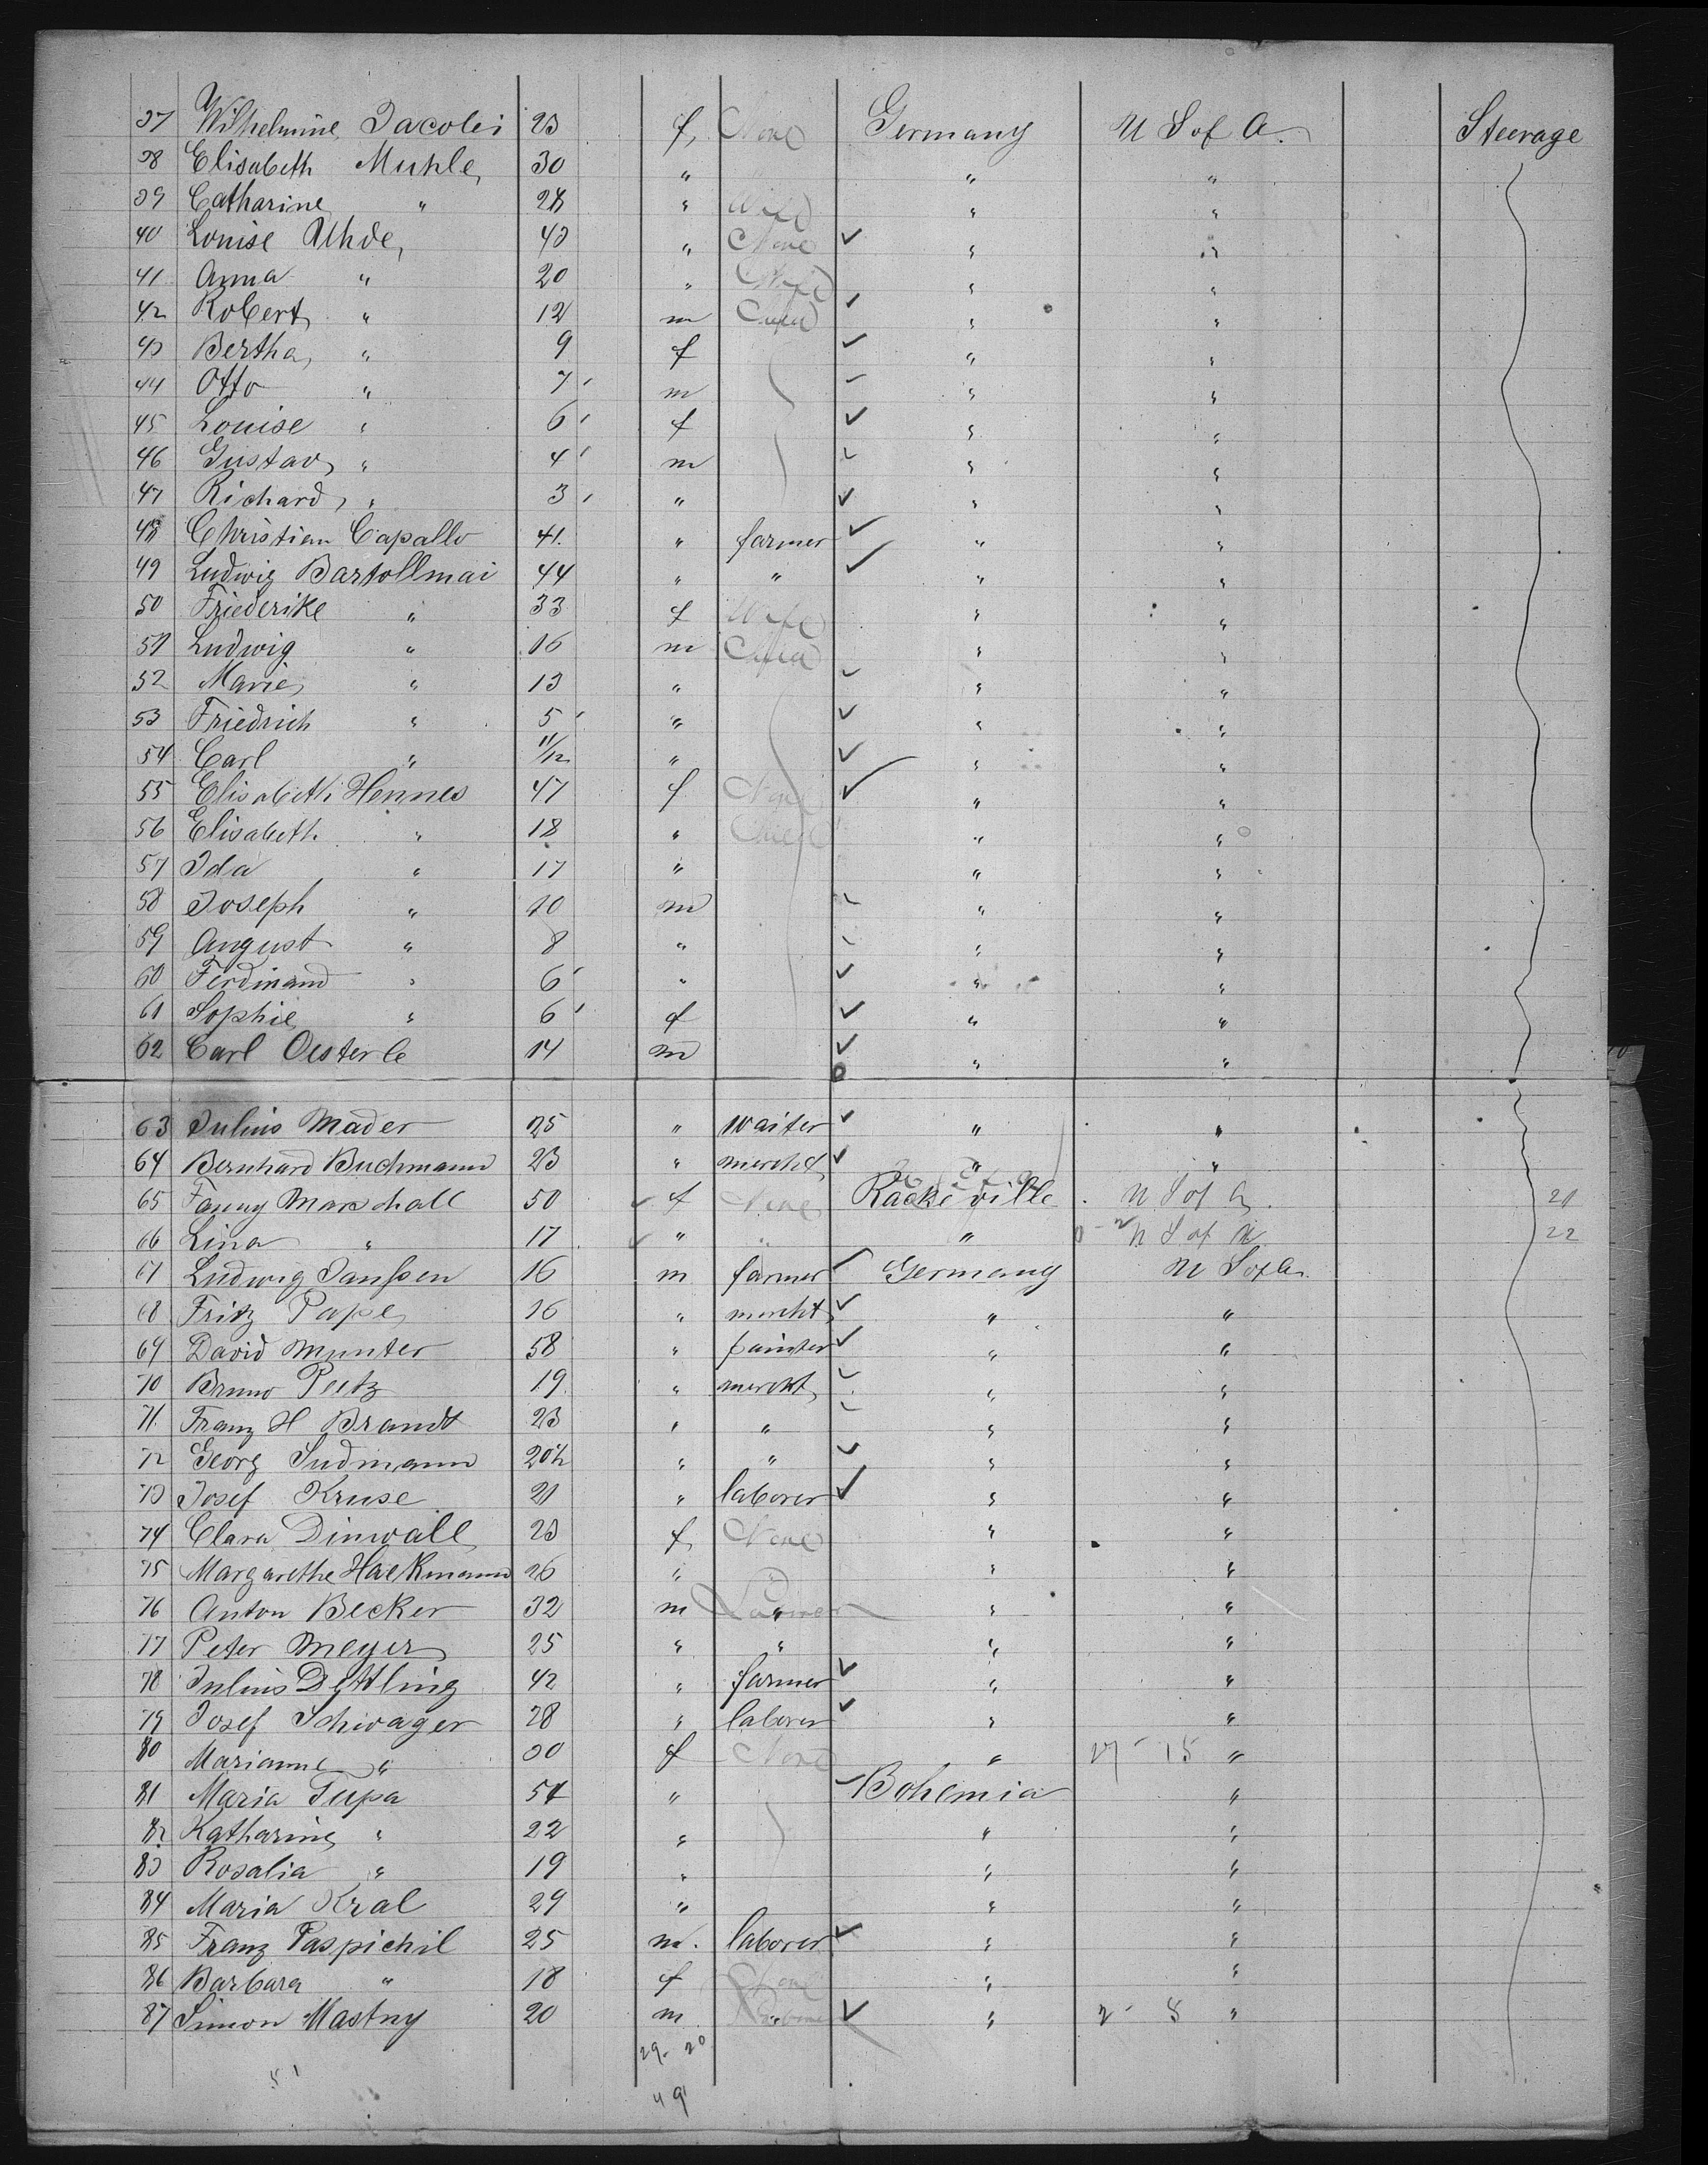 37 Wilhelmine Jacobi 23 f. None Germany U S of A. Steerage
38 Elisabeth Muhle, 30 " " "
39 Catharine " 28 " Wife " "
40 Louise Uhde, 43 " None " "
41 Anna " 20 " " "
42 Robert, " 12 m Child " "
43 Bertha, " 9 f " "
44 Otto " 7 m " "
45 Louise " 6 f " "
46 Gustav, " 4 m " "
47 Richard, " 3 " " "
48 Christian Capallo 41. " farmer " "
49 Ludwig Bartollmai 44 " " " "
50 Friederike " 33 f Wife " "
51 Ludwig " 16 m Child " "
52 Marie, " 13 " " "
53 Friedrich " 5 " " "
54 Carl " 11/12 " " "
55 Elisabeth Hennes 47 f None " "
56 Elisabeth " 18 " Child " "
57 Ida " 17 " " "
58 Joseph " 10 m " "
59 August " 8 " " "
60 Ferdinand " 6 " " "
61 Sophie " 6 f " "
62 Carl Oesterle 14 m " "
63 Julius Mader 25 " waiter " "
64 Bernhard Buchmann 23 " mercht, " "
65 Fanny Marschall 50 f None Racke ville U S of A. 21
66 Lina " 17 " " " U S of A 22
67 Ludwig Janssen 16 m farmer Germany U S of A.
68 Fritz Pape, 16 " mercht, " "
69 David Munter 58 " painter " "
70 Bruno Peetz 19. " mercht, " "
71. Franz H Brandt 23 " " " "
72 Georg Sudmann 20 1/2 " " " "
73 Josef Kruse 21 " laborer " "
74 Clara Dinwall 23 f, None " "
75 Margarethe Hackmann 26 " " " "
76 Anton Becker 32 m Farmer " "
77 Peter Meyer 25 " " " "
78 Julius Dettling 42 " farmer " "
79 Josef Schwager 28 " laborer " "
80 Marianne " 30 f None " 15 "
81 Maria Tupa 54 " Bohemia "
82 Katharine, " 22 " " "
83 Rosalia " 19 " " "
84 Maria Kral 29 " " "
85 Franz Paspichil 25 m. laborer " "
86 Barbara " 18 f None " "
87 Simon Mastny 20 m " " 2 - 8 "
29 - 20
51
49